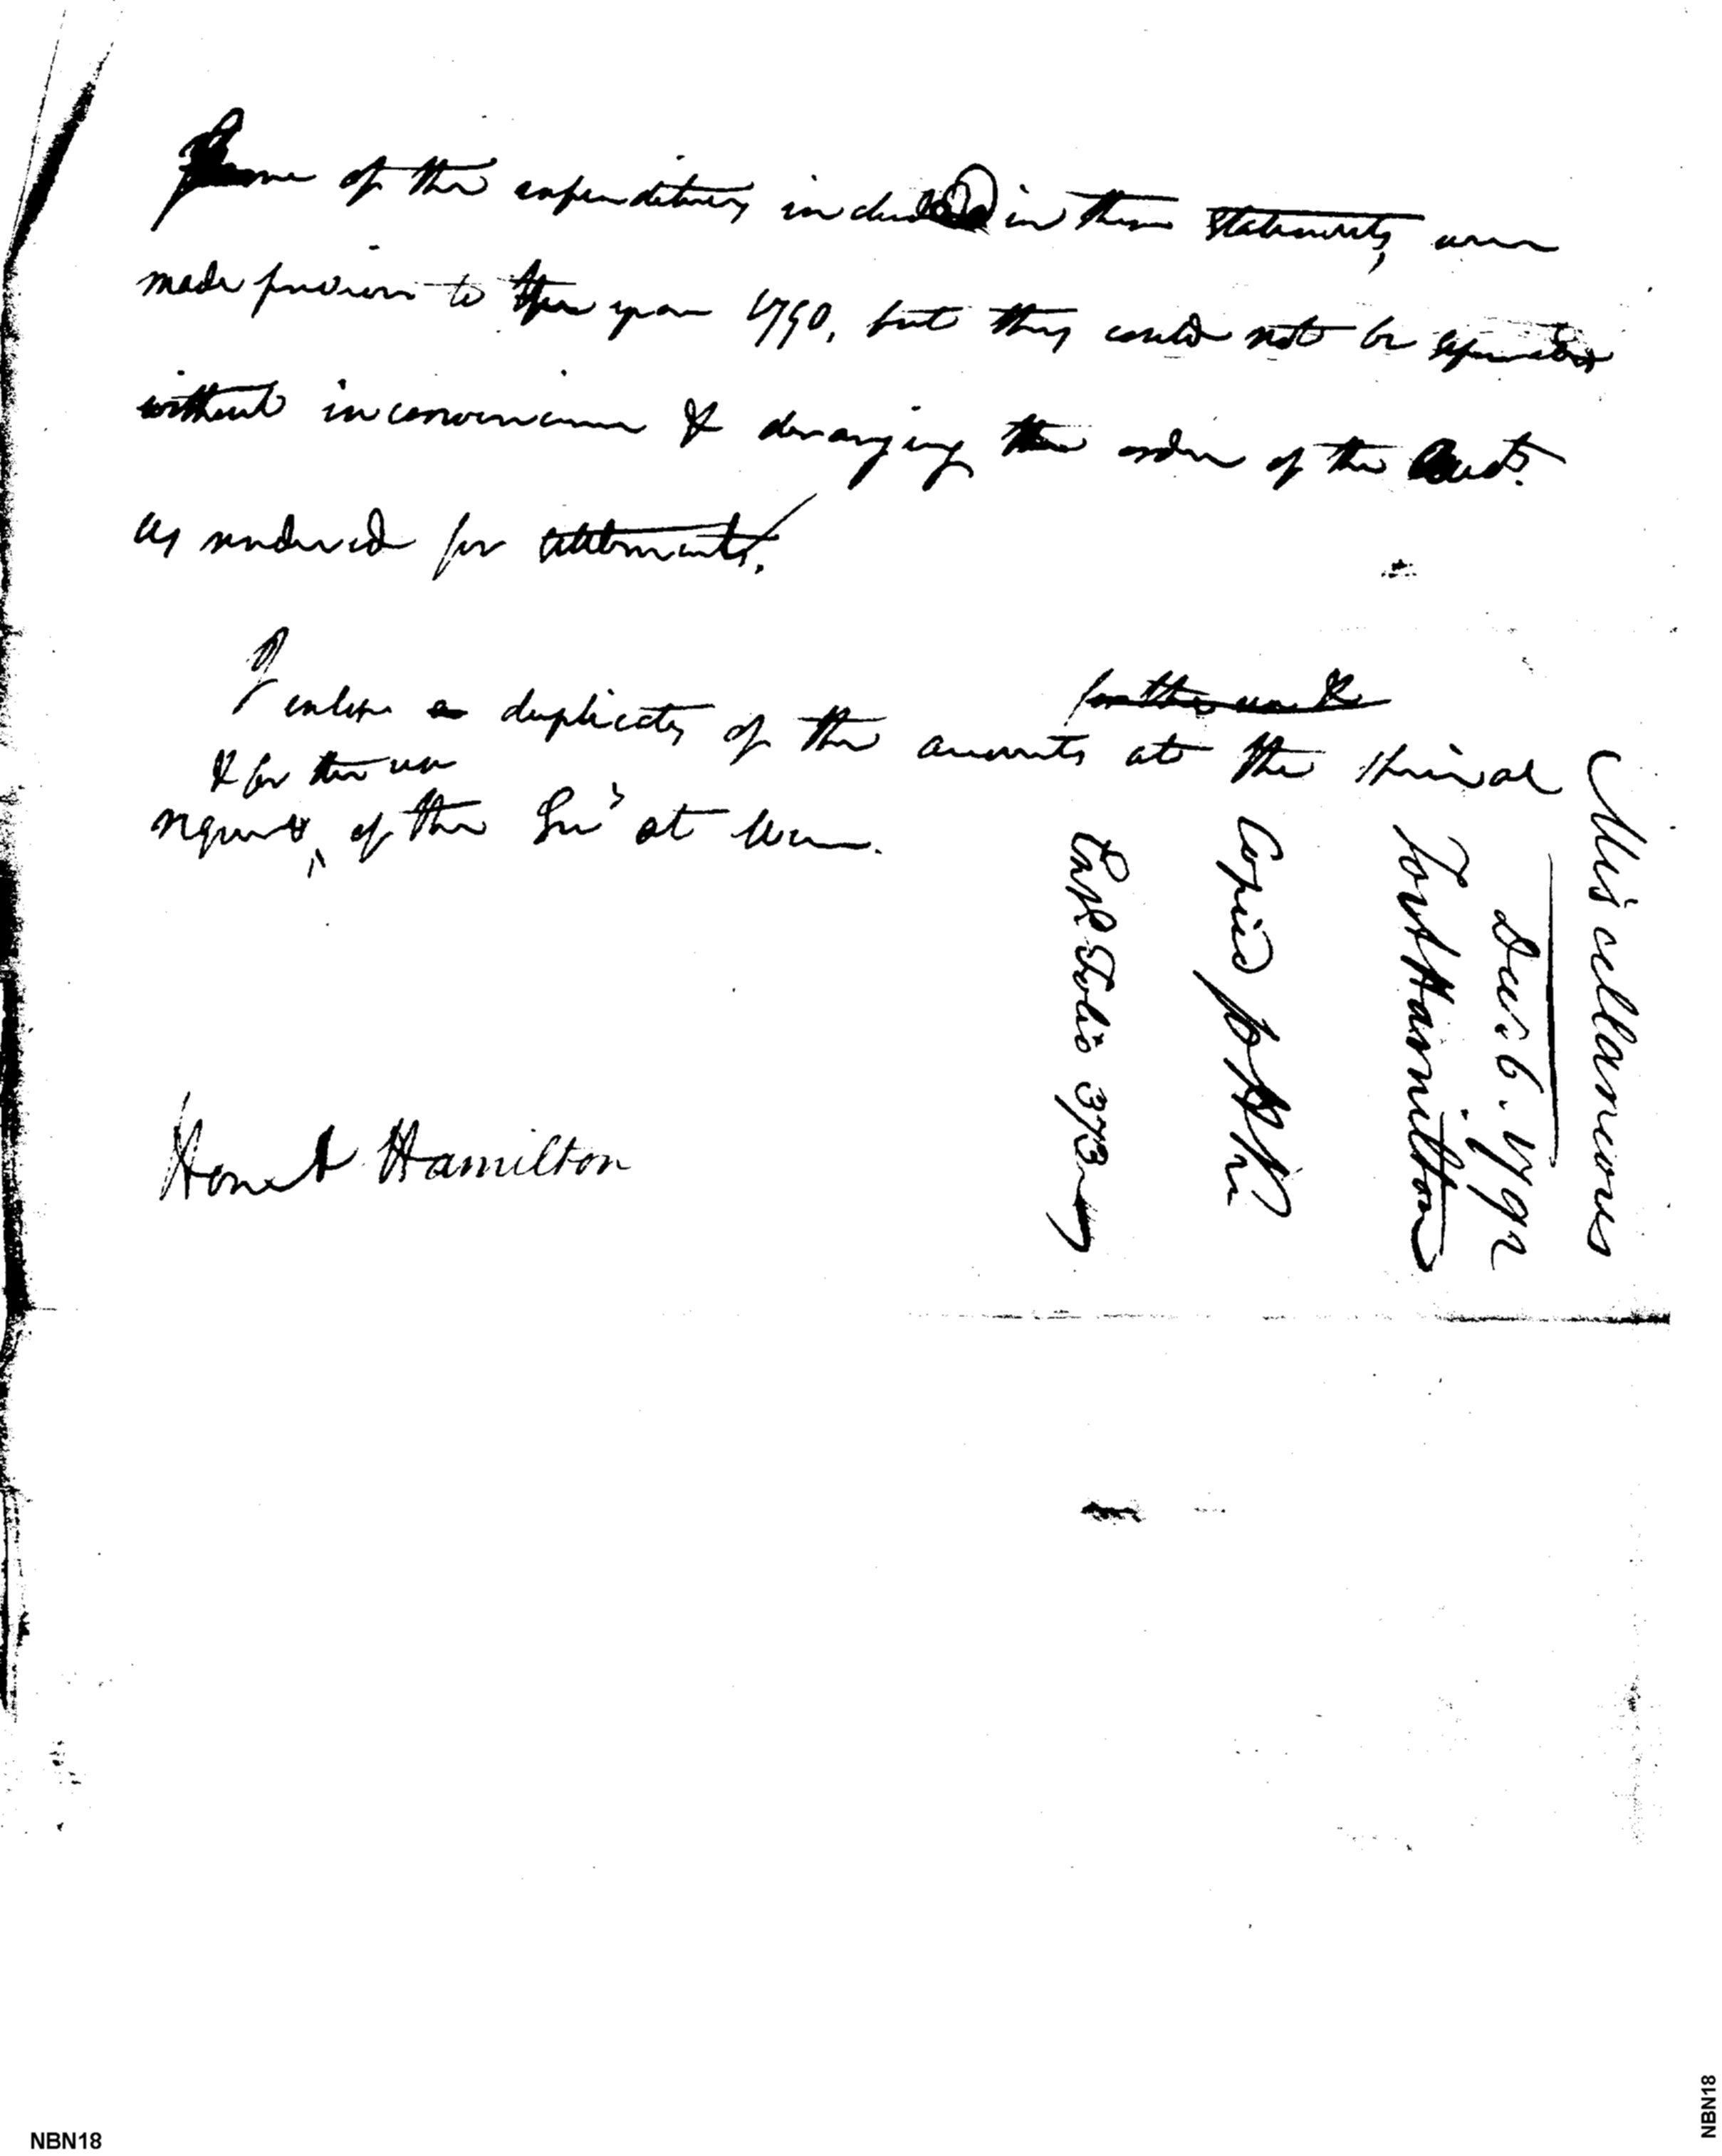 Some of the expenditures included in these statements, were
made previous to the year 1790, but they could not be separated
without inconvenience & deranging the order of the Acct.
as rendered for settlements.
for the use &
I enclose a duplicates of the accounts at the
& for the use
request of the Secy at War.
Hon A Hamilton
Miscellaneous
Decr. 6. 1792
To A Hamilton
Copied
Folio 373
NBN18
NBN18